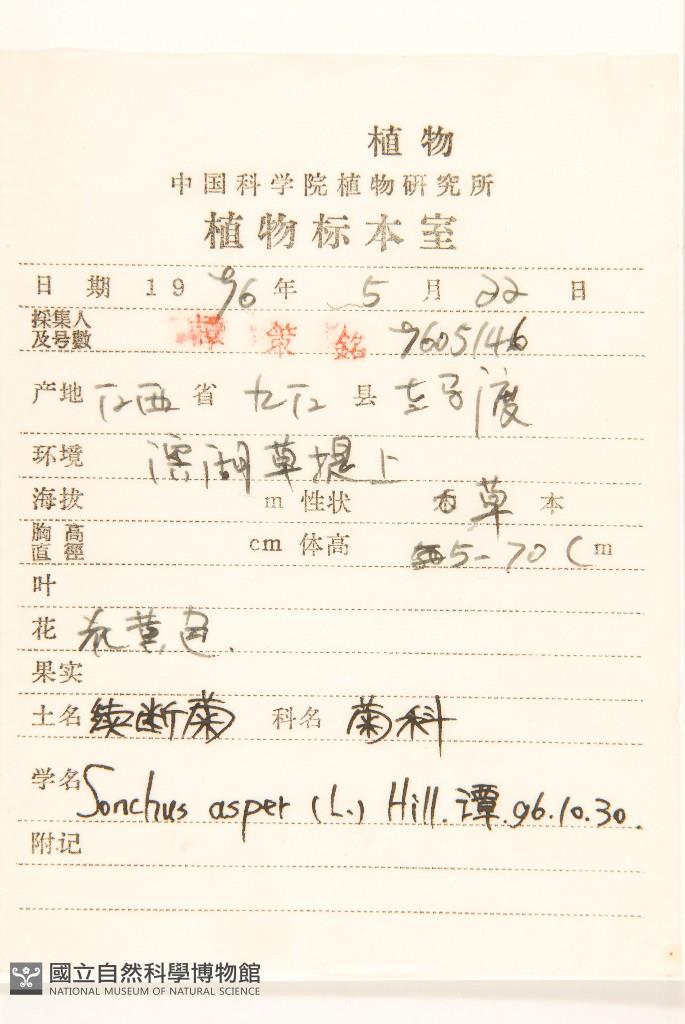 植物
中国科学院植物研究所
植物标本室
日 期 1996年 5 月 22 日
採集人及号數 譚策銘 9605146
产地 江西省 九江县
环境 滨湖草堤上
海拔 m 性状 草本
胸高直徑 cm 体高 5-70Cm
叶
花 花黄色.
果实
土名 续断菊 科名 菊科
学名 Sonchus asper (L.) Hill. 谭. 96.10.30.
附记
國立自然科學博物館
NATIONAL MUSEUM OF NATURAL SCIENCE